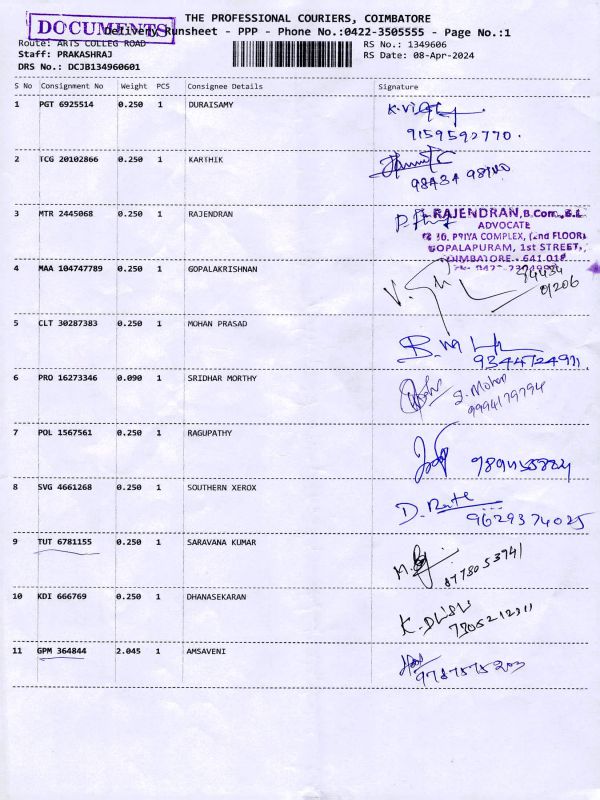 THE PROFESSIONAL COURIERS, COIMBATORE
DOCUMENTS
Delivery Runsheet - PPP - Phone No.:0422-3505555 - Page No.:1
Route: ARTS COLLEG ROAD RS No.: 1349606
Staff: PRAKASHRAJ RS Date: 08-Apr-2024
DRS No.: DCJB134960601
S No Consignment No Weight PCS Consignee Details Signature
1 PGT 6925514 0.250 1 DURAISAMY
9159592770.
2 TCG 20102866 0.250 1 KARTHIK
3 MTR 2445068 0.250 1 RAJENDRAN
RAJENDRAN, B.Com., B.L
ADVOCATE
30, PRIYA COMPLEX, (2nd FLOOR)
GOPALAPURAM, 1st STREET,
COIMBATORE - 641 018
4 MAA 104747789 0.250 1 GOPALAKRISHNAN
5 CLT 30287383 0.250 1 MOHAN PRASAD
9344724911.
6 PRO 16273346 0.090 1 SRIDHAR MORTHY
S. Mohan
9994179794
7 POL 1567561 0.250 1 RAGUPATHY
8 SVG 4661268 0.250 1 SOUTHERN XEROX
9629374025
9 TUT 6781155 0.250 1 SARAVANA KUMAR
8778053741
10 KDI 666769 0.250 1 DHANASEKARAN
11 GPM 364844 2.045 1 AMSAVENI
9787575203